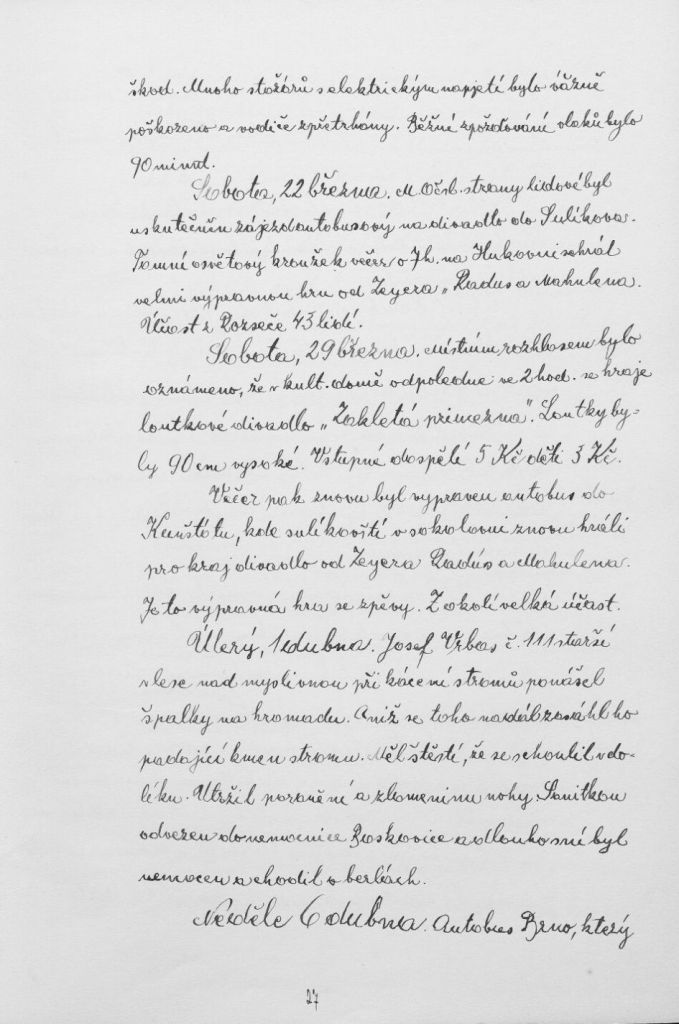 škod. Mnoho stožárů s elektrickým napjetí bylo vážně
poškozeno a vodiče zpřetrhány. Běžné zpožďování vlaků bylo
90 minut.
Sobota, 22 března. M. Očsb. strany lidové byl
uskutečněn zájezd autobusový na divadlo do Sulíkova.
Tamní osvětový kroužek večer o 7h. na Hukovni sehrál
velmi výpravnou hru od Zeyera „Radus a Mahulena.
Účast z Rozseče 43 lidí.
Sobota, 29 března. Místním rozhlasem bylo
oznámeno, že v kult. domě odpoledne ve 2 hod. se hraje
loutkové divadlo „Zakletá princezna". Loutky by-
ly 90 cm vysoké. Vstupné dospělí 5 Kč děti 3 Kč.
Večer pak znovu byl vypraven autobus do
Kunštátu, kde sulíkovští v sokolovni znovu hráli
pro kraj divadlo od Zeyera Radús a Mahulena.
Je to výpravná hra se zpěvy. Z okolí velká účast.
Úterý, 1 dubna. Josef Vrbas č. 111 starší
v lese nad myslivnou při kácení stromů ponášel
špalky na hromadu. Aniž se toho nadál zasáhl ho
padající kmen stromu. Měl štěstí, že se schoulil v do-
líku. Utržil poranění a zlomeninu nohy. Sanitkou
odvezen do nemocnice Boskovice a dlouho sní byl
nemocen a chodil o berlách.
Neděle 6 dubna. Autobus Brno, který
27